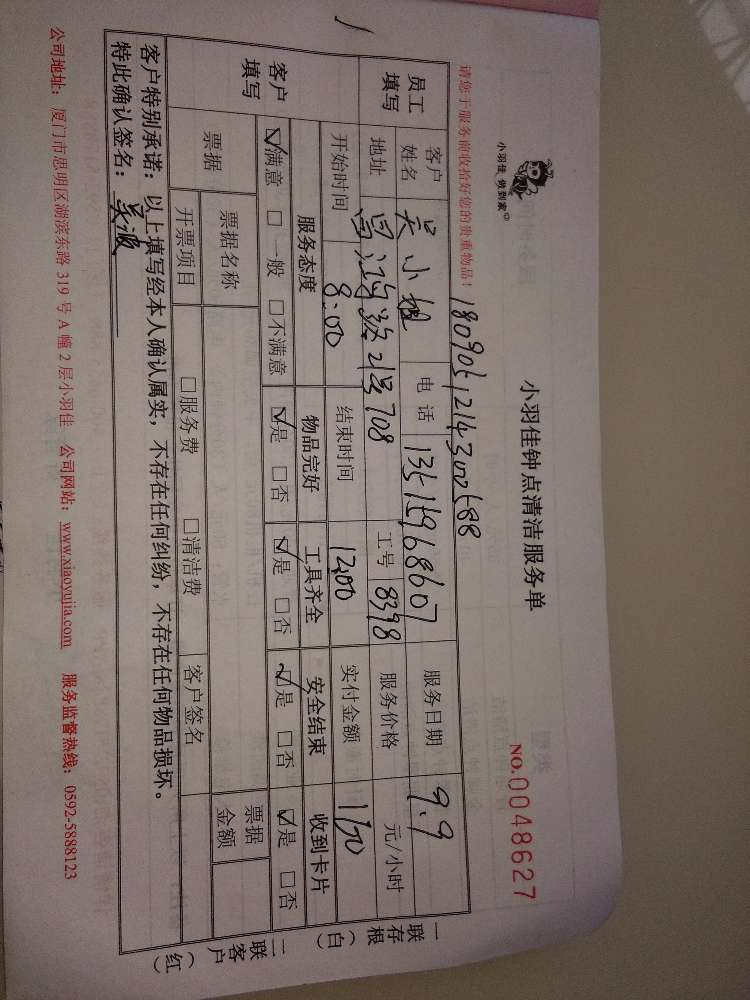 小羽佳 做到家
小羽佳钟点清洁服务单
NO.0048627
请您于服务前收拾好您的贵重物品！
1809051214300588
员工填写
客户姓名 吴小姐 电话 13515968607 服务日期 9.9
地址 2号708 工号 8398 服务价格 元/小时
开始时间 8:00 结束时间 12:00 实付金额
客户填写
服务态度 物品完好 工具齐全 安全结束 收到卡片
☑满意 □一般 □不满意 ☑是 □否 ☑是 □否 ☑是 □否 ☑是 □否
票据 票据名称 票据金额
开票项目 □服务费 □清洁费 客户签名
客户特别承诺：以上填写经本人确认属实，不存在任何纠纷，不存在任何物品损坏。
特此确认签名：吴波
一联存根（白）
二联客户（红）
公司地址：厦门市思明区湖滨东路319号A幢2层小羽佳 公司网站：www.xiaoyujia.com 服务监督热线：0592-5888123